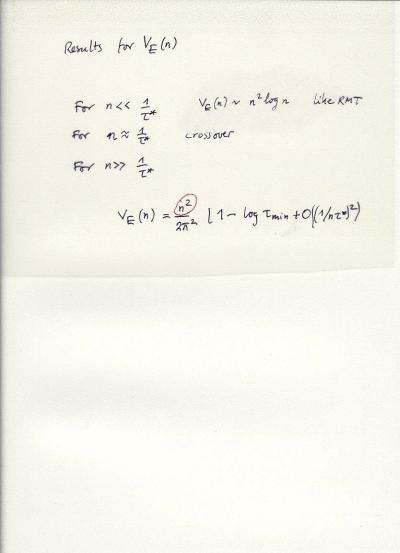 Results for V_E(n)
For n << 1/τ* V_E(n) ~ n² log n like RMT
For n ≈ 1/τ* crossover
For n >> 1/τ*
V_E(n) = n²/2π² [1 - log τ_min + O((1/nτ*)²)